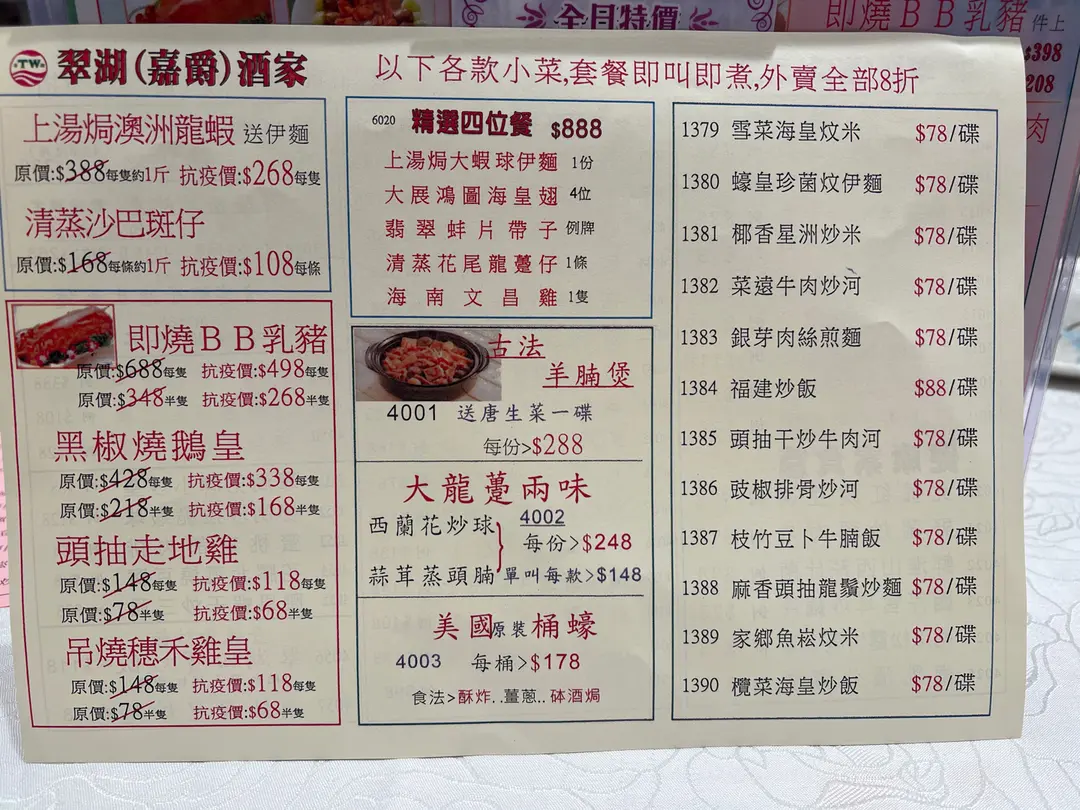 全月特價
即燒ＢＢ乳豬 件上
$398
208
肉
TW
翠湖(嘉爵)酒家
以下各款小菜,套餐即叫即煮,外賣全部8折
上湯焗澳洲龍蝦 送伊麵
原價:$388每隻約1斤 抗疫價:$268每隻
清蒸沙巴斑仔
原價:$168每條約1斤 抗疫價:$108每條
即燒ＢＢ乳豬
原價:$688每隻 抗疫價:$498每隻
原價:$348半隻 抗疫價:$268半隻
黑椒燒鵝皇
原價:$428每隻 抗疫價:$338每隻
原價:$218半隻 抗疫價:$168半隻
頭抽走地雞
原價:$148每隻 抗疫價:$118每隻
原價:$78半隻 抗疫價:$68半隻
吊燒穗禾雞皇
原價:$148每隻 抗疫價:$118每隻
原價:$78半隻 抗疫價:$68半隻
6020 精選四位餐 $888
上湯焗大蝦球伊麵 1份
大展鴻圖海皇翅 4位
翡翠蚌片帶子 例牌
清蒸花尾龍躉仔 1條
海南文昌雞 1隻
古法
羊腩煲
4001 送唐生菜一碟
每份>$288
大龍躉兩味
西蘭花炒球 4002
每份>$248
蒜茸蒸頭腩 單叫每款>$148
美國原裝桶蠔
4003 每桶>$178
食法>酥炸..薑蔥..砵酒焗
1379 雪菜海皇炆米 $78/碟
1380 蠔皇珍菌炆伊麵 $78/碟
1381 椰香星洲炒米 $78/碟
1382 菜遠牛肉炒河 $78/碟
1383 銀芽肉絲煎麵 $78/碟
1384 福建炒飯 $88/碟
1385 頭抽干炒牛肉河 $78/碟
1386 豉椒排骨炒河 $78/碟
1387 枝竹豆卜牛腩飯 $78/碟
1388 麻香頭抽龍鬚炒麵 $78/碟
1389 家鄉魚崧炆米 $78/碟
1390 欖菜海皇炒飯 $78/碟